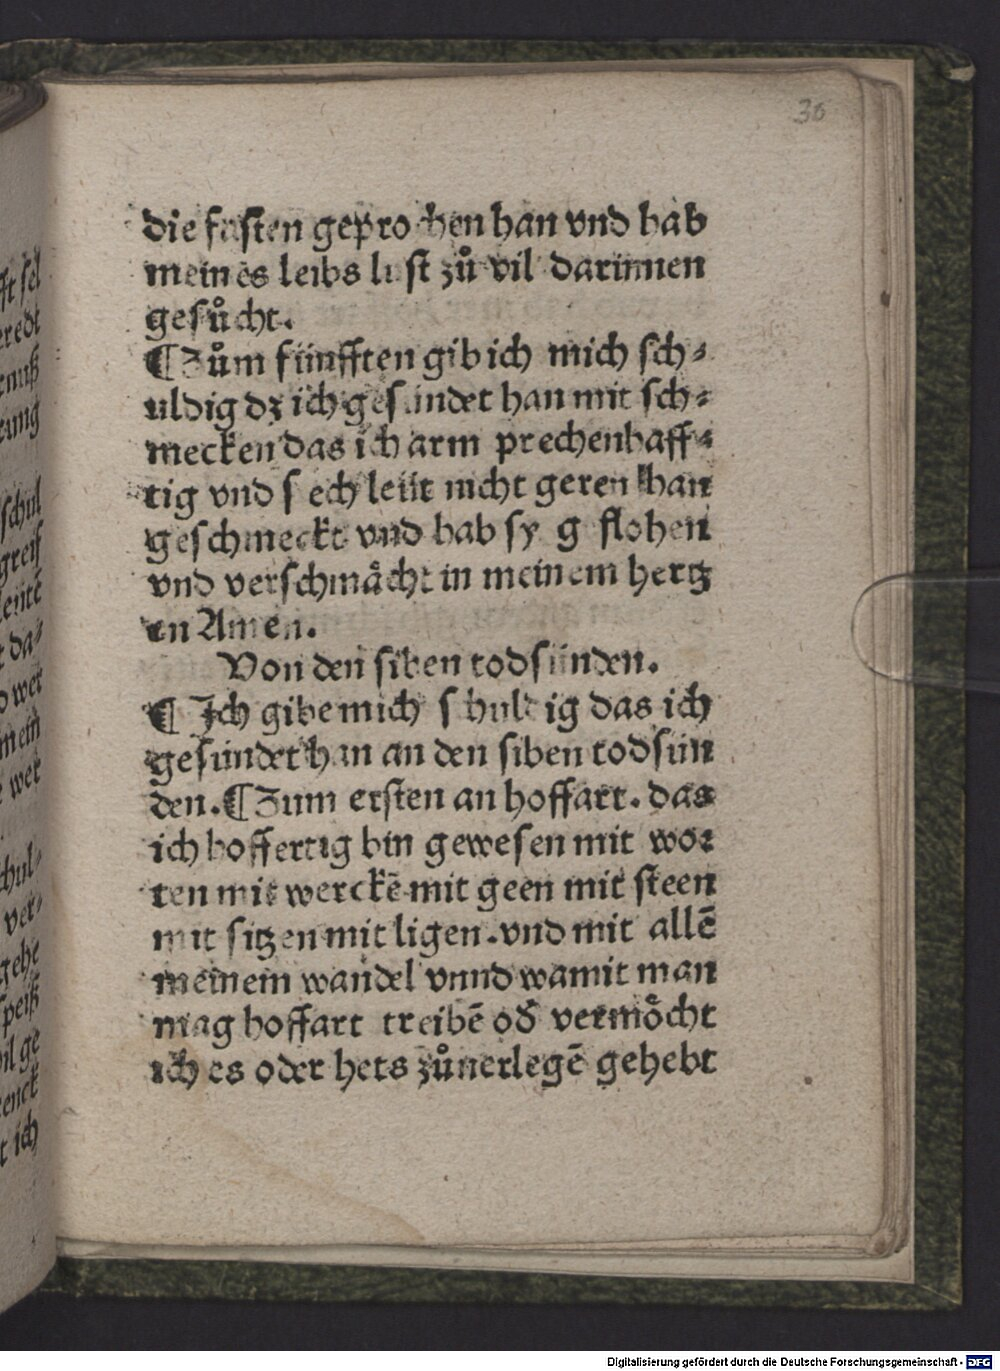 30
die fasten geprochen han vnd hab
meines leibs lust zů vil darinnen
gesůcht.
¶Zům fünfften gib ich mich sch⸗
uldig dz ich gesündet han mit sch⸗
mecken das ich arm prechenhaff⸗
tig vnd siech leüt nicht geren han
geschmeckt vnd hab sy geflohen
vnd verschmächt in meinem hertz
en Amen.
Von den siben todsünden.
¶ Ich gibe mich schuldig das ich
gesündet han an den siben todsün
den.¶Zum ersten an hoffart. das
ich hoffertig bin gewesen mit wor
ten mit werckē mit geen mit steen
mit sitzen mit ligen.vnd mit allē
meinem wandel vnnd wamit man
mag hoffart treibē od̓ vermöcht
ich es oder hets zůuerlegē gehebt
Digitalisierung gefördert durch die Deutsche Forschungsgemeinschaft - DFG